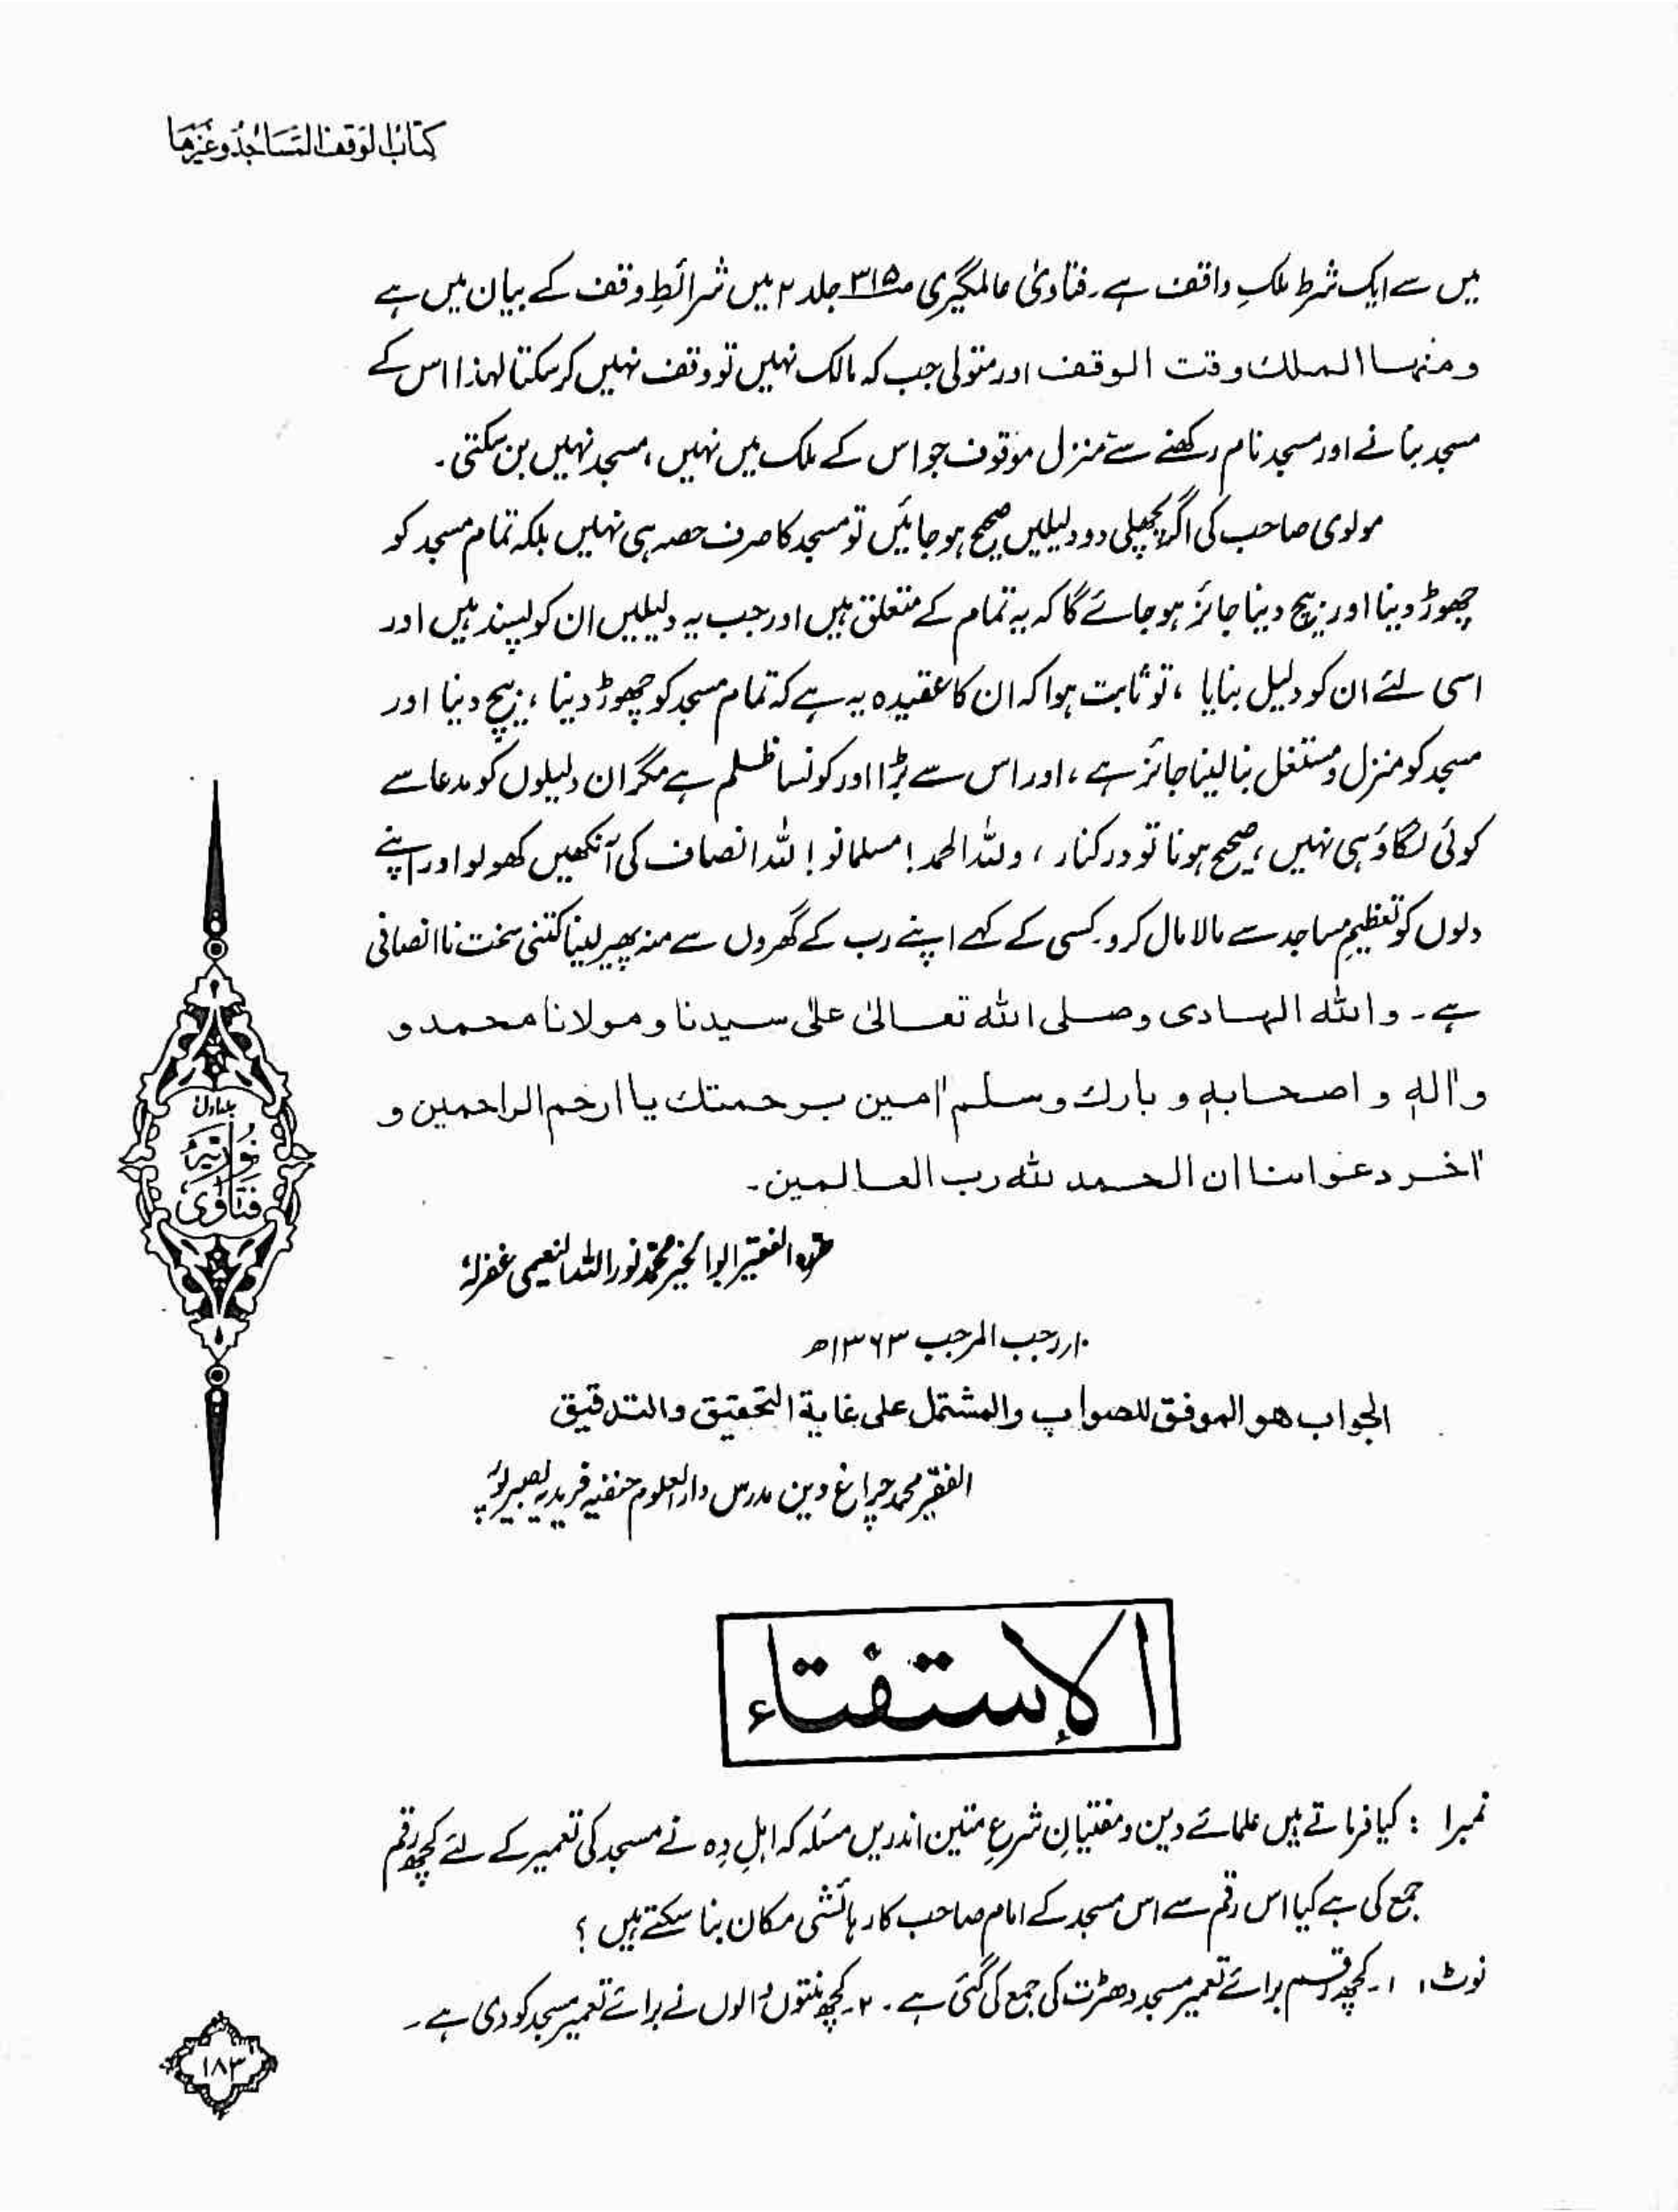 کتاب الوقف المساجد وغیرھا
میں سے ایک شرط ملکِ واقف ہے۔ فتاویٰ عالمگیری ص۳۱۵ جلد ۲ میں شرائطِ وقف کے بیان میں ہے
ومنہا الملك وقت الوقف اور متولی جب کہ مالک نہیں تو وقف نہیں کر سکتا لہذا اس کے
مسجد بنانے اور مسجد نام رکھنے سے منزل موقوف جو اس کے ملک میں نہیں، مسجد نہیں بن سکتی۔
مولوی صاحب کی اگر پچھلی دو دلیلیں صحیح ہو جائیں تو مسجد کا صرف حصہ ہی نہیں بلکہ تمام مسجد کو
چھوڑ دینا اور بیچ دینا جائز ہو جائے گا کہ یہ تمام کے متعلق ہیں اور جب یہ دلیلیں ان کو پسند ہیں اور
اسی لئے ان کو دلیل بنایا ، تو ثابت ہوا کہ ان کا عقیدہ یہ ہے کہ تمام مسجد کو چھوڑ دینا ، بیچ دینا اور
مسجد کو منزل و مستغل بنا لینا جائز ہے ، اور اس سے بڑا اور کونسا ظلم ہے مگر ان دلیلوں کو مدعا سے
کوئی لگاؤ ہی نہیں ، صحیح ہونا تو درکنار ، وللہ الحمد ! مسلمانو ! للہ انصاف کی آنکھیں کھولو اور اپنے
دلوں کو تعظیمِ مساجد سے مالا مال کرو۔ کسی کے کہے اپنے رب کے گھروں سے منہ پھیر لینا کتنی سخت ناانصافی
ہے۔ واللہ الہادی وصلی اللہ تعالیٰ علیٰ سیدنا و مولانا محمد و
واٰلہٖ و اصحابہٖ و بارك وسلم اٰمین برحمتك یا ارحم الراحمین و
اٰخر دعوانا ان الحمد للہ رب العالمین۔
حررہ الفقیر ابو الخیر محمد نور اللہ النعیمی غفرلہٗ
۱۰؍ رجب المرجب ۱۳۶۳ھ
الجواب ھو الموفق للصواب والمشتمل علی غایة التحقیق والتدقیق
الفقیر محمد چراغ دین مدرس دارالعلوم حنفیہ فریدیہ بصیرپور
جلد اول
نوریہ
فتاویٰ
الإستفتاء
نمبر۱ : کیا فرماتے ہیں علمائے دین و مفتیانِ شرعِ متین اندریں مسئلہ کہ اہلِ دِہ نے مسجد کی تعمیر کے لئے کچھ رقم
جمع کی ہے کیا اس رقم سے اس مسجد کے امام صاحب کا رہائشی مکان بنا سکتے ہیں ؟
نوٹ، ۱۔ کچھ رقم برائے تعمیر مسجد دھڑت کی جمع کی گئی ہے۔ ۲۔ کچھ منتوں والوں نے برائے تعمیر مسجد کو دی ہے۔
۱۸۳